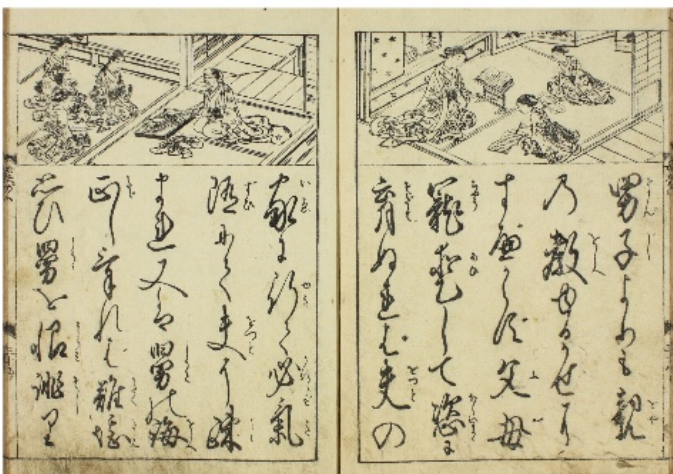 男子よりも親
の教ゆるかせに
すべからず父母
寵愛して恣に
育ぬれば夫の
家に行て必氣
随にて夫に疎
まれ又は舅の誨
正しければ難堪
思ひ舅を恨誹り